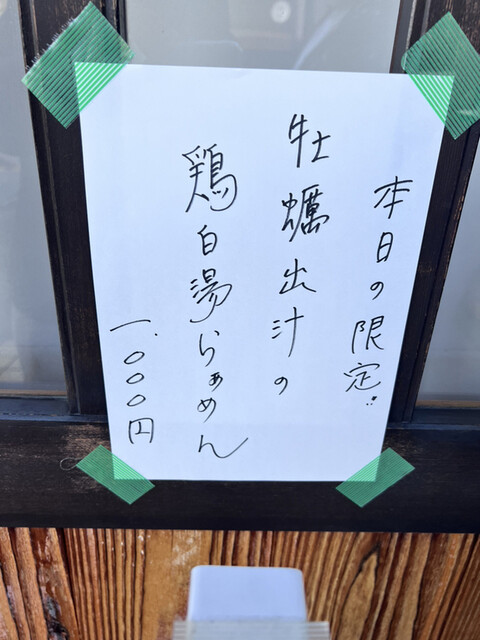 本日の限定:
牡蠣出汁の
鶏白湯らぁめん
一、〇〇〇円